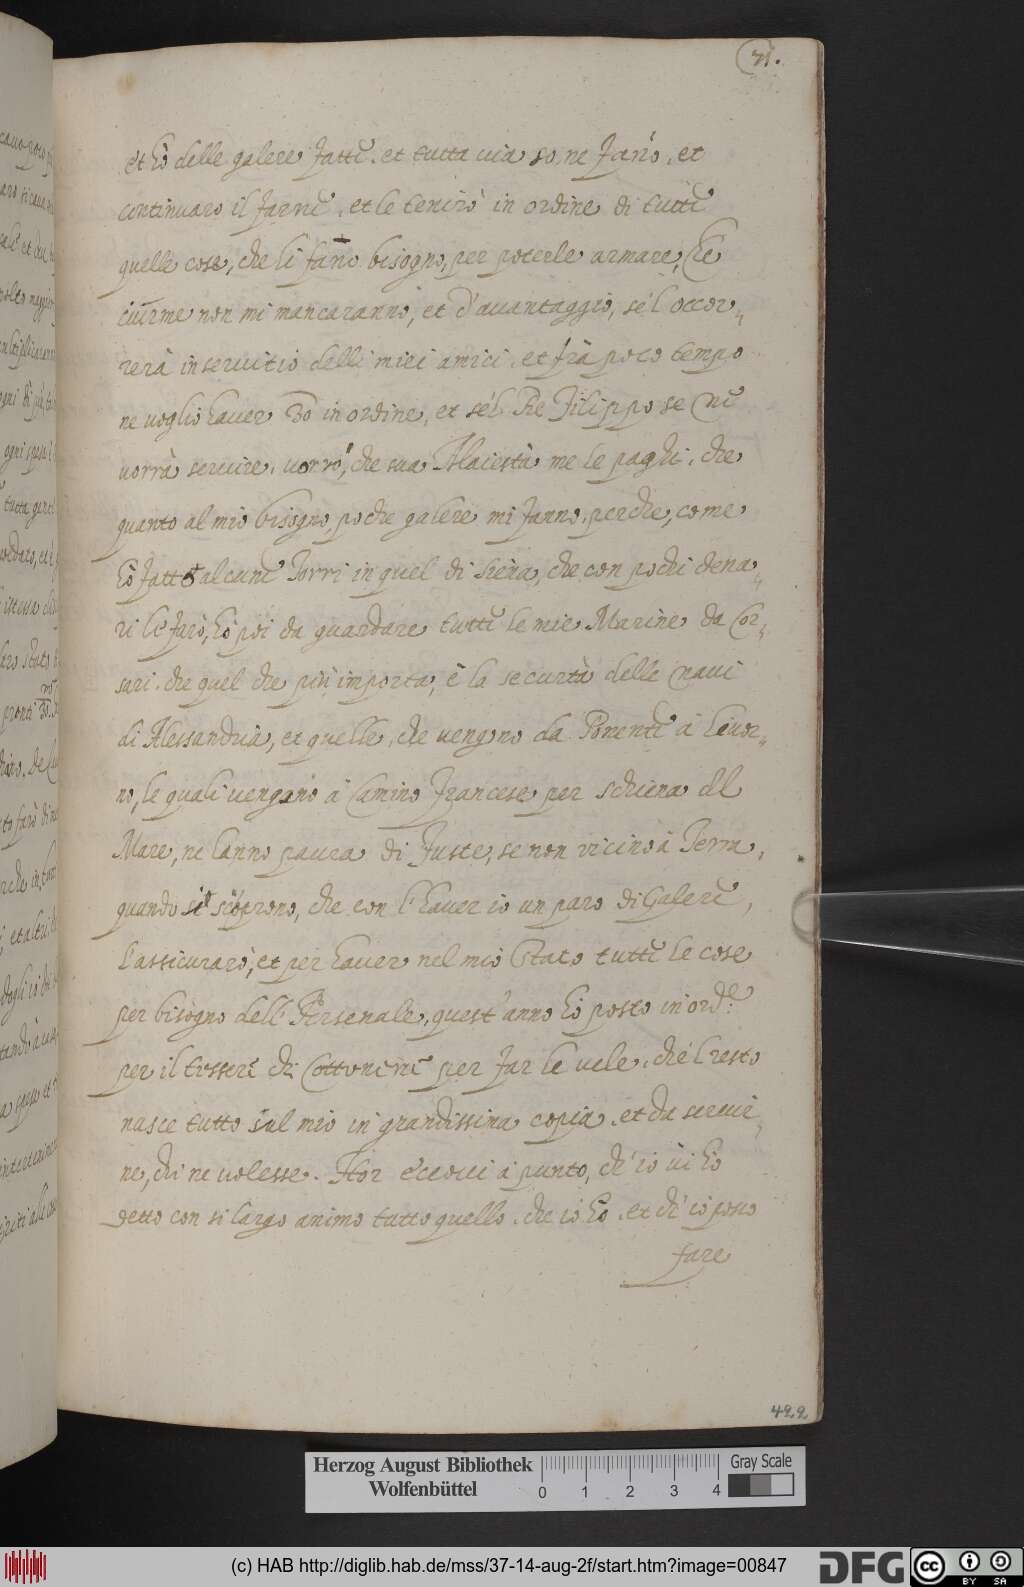 71.
et hò delle galere fatte, et tutta uia se ne fanò, et
continuaro il farne, et le tenirò in ordine di tutte
quelle cose, che li fano bisogno, per poterle armare, che
ciurme non mi mancaranno, et d'auantaggio, se'l occor-
rerà in seruitio delli miei amici, et frà poco tempo
ne uoglio hauer 30 in ordine, et se'l Rè Filippo se ne
uorrà seruire, uorrò, che sua Maiestà me le paghi, che
quanto al mio bisogno, poche galere mi fanno, perche, come
hò fatto alcune Torri in quel di Siena, che con pochi dena-
ri le farò, hò poi da guardare tutte le mie Marine da Cor-
sari, che quel che più importa, è la securtà delle Naui
di Alessandria, et quelle, che uengono da Ponente à Liuor-
no, le quali uengano à Camino Francese per schiena del
Mare, ne hanno paura di Fuste, se non vicino à Terra,
quando si scoprono, che con l'hauer io un paro di Galere,
l'assicurarò, et per hauer nel mio Stato tutte le cose
per bisogno dell' Arsenale, quest' anno hò posto in ord.e
per il tessere di Cottonine per far le uele, che'l resto
nasce tutto sul mio in grandissima copia, et da seruir-
ne, chi ne uolesse. Hor eccoui à punto, ch'io ui hò
detto con si largo animo tutto quello, che io hò, et ch'io posso
fare
422
Herzog August Bibliothek
Wolfenbüttel
0 1 2 3 4
Gray Scale
(c) HAB http://diglib.hab.de/mss/37-14-aug-2f/start.htm?image=00847
DFG
cc BY SA